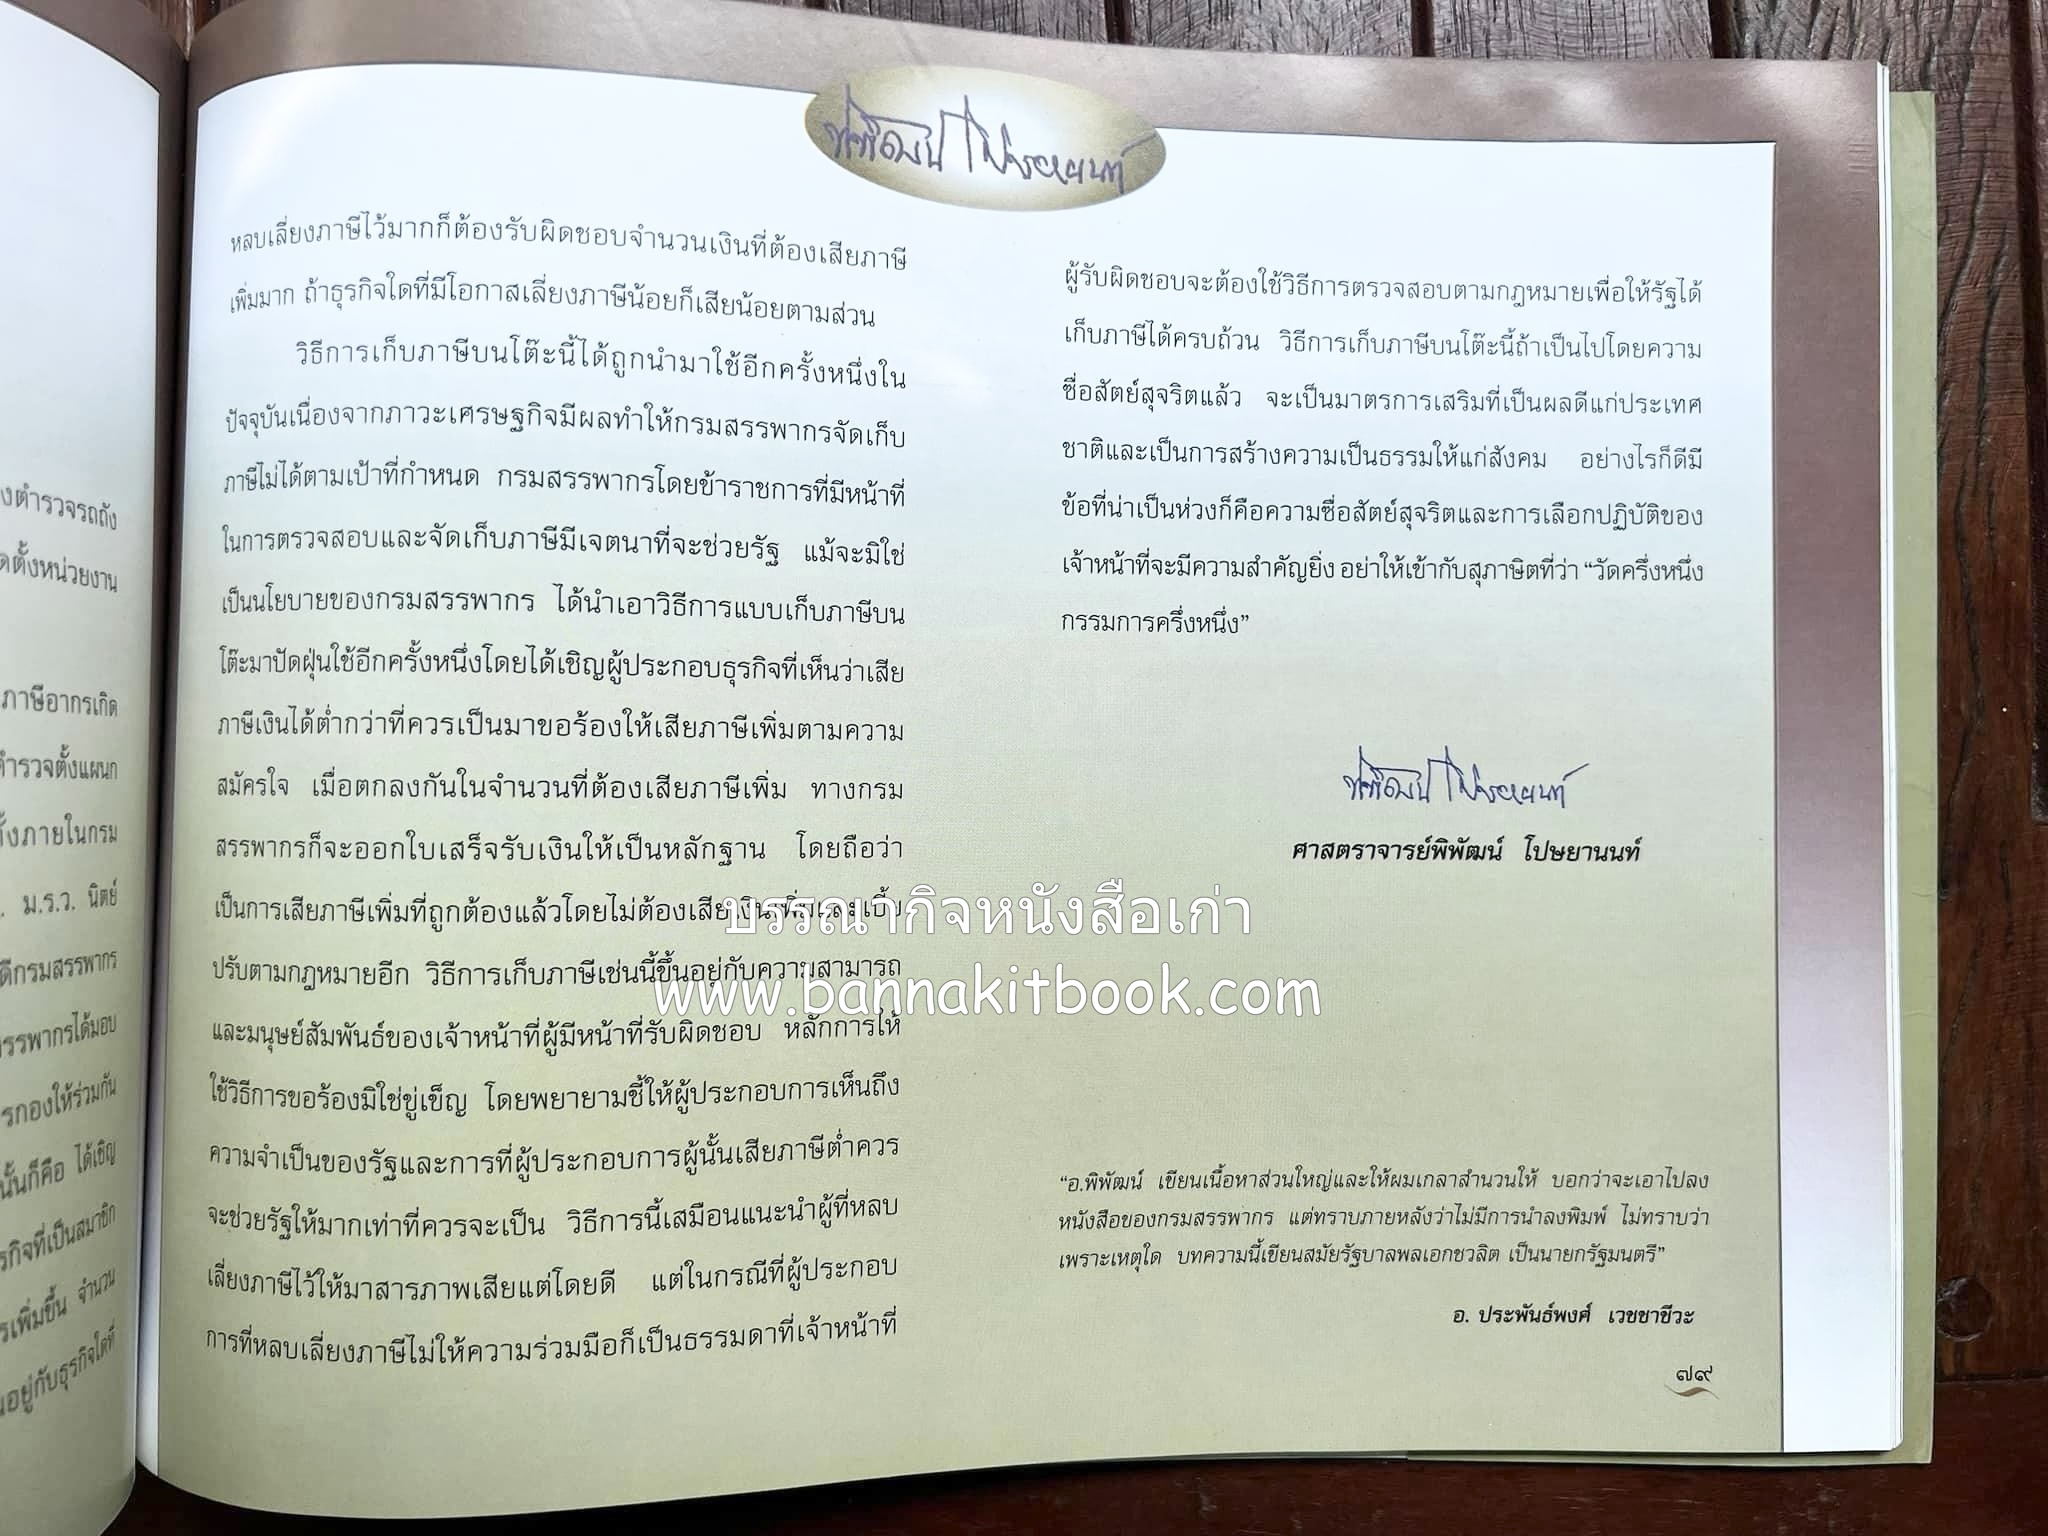 งตำรวจรถถัง
ดตั้งหน่วยงาน
ภาษีอากรเกิด
ตำรวจตั้งแผนก
ั้งภายในกรม
ม.ร.ว. นิตย์
ดีกรมสรรพากร
รรพากรได้มอบ
รกองให้ร่วมกัน
นั้นก็คือ ได้เชิญ
รกิจที่เป็นสมาชิก
รเพิ่มขึ้น จำนวน
นอยู่กับธุรกิจใดที่
พิพัฒน์ โปษยานนท์
หลบเลี่ยงภาษีไว้มากก็ต้องรับผิดชอบจำนวนเงินที่ต้องเสียภาษี
เพิ่มมาก ถ้าธุรกิจใดที่มีโอกาสเลี่ยงภาษีน้อยก็เสียน้อยตามส่วน
วิธีการเก็บภาษีบนโต๊ะนี้ได้ถูกนำมาใช้อีกครั้งหนึ่งใน
ปัจจุบันเนื่องจากภาวะเศรษฐกิจมีผลทำให้กรมสรรพากรจัดเก็บ
ภาษีไม่ได้ตามเป้าที่กำหนด กรมสรรพากรโดยข้าราชการที่มีหน้าที่
ในการตรวจสอบและจัดเก็บภาษีมีเจตนาที่จะช่วยรัฐ แม้จะมิใช่
เป็นนโยบายของกรมสรรพากร ได้นำเอาวิธีการแบบเก็บภาษีบน
โต๊ะมาปัดฝุ่นใช้อีกครั้งหนึ่งโดยได้เชิญผู้ประกอบธุรกิจที่เห็นว่าเสีย
ภาษีเงินได้ต่ำกว่าที่ควรเป็นมาขอร้องให้เสียภาษีเพิ่มตามความ
สมัครใจ เมื่อตกลงกันในจำนวนที่ต้องเสียภาษีเพิ่ม ทางกรม
สรรพากรก็จะออกใบเสร็จรับเงินให้เป็นหลักฐาน โดยถือว่า
เป็นการเสียภาษีเพิ่มที่ถูกต้องแล้วโดยไม่ต้องเสียเงินเพิ่มและเบี้ย
ปรับตามกฎหมายอีก วิธีการเก็บภาษีเช่นนี้ขึ้นอยู่กับความสามารถ
และมนุษย์สัมพันธ์ของเจ้าหน้าที่ผู้มีหน้าที่รับผิดชอบ หลักการให้
ใช้วิธีการขอร้องมิใช่ขู่เข็ญ โดยพยายามชี้ให้ผู้ประกอบการเห็นถึง
ความจำเป็นของรัฐและการที่ผู้ประกอบการผู้นั้นเสียภาษีต่ำควร
จะช่วยรัฐให้มากเท่าที่ควรจะเป็น วิธีการนี้เสมือนแนะนำผู้ที่หลบ
เลี่ยงภาษีไว้ให้มาสารภาพเสียแต่โดยดี แต่ในกรณีที่ผู้ประกอบ
การที่หลบเลี่ยงภาษีไม่ให้ความร่วมมือก็เป็นธรรมดาที่เจ้าหน้าที่
ผู้รับผิดชอบจะต้องใช้วิธีการตรวจสอบตามกฎหมายเพื่อให้รัฐได้
เก็บภาษีได้ครบถ้วน วิธีการเก็บภาษีบนโต๊ะนี้ถ้าเป็นไปโดยความ
ซื่อสัตย์สุจริตแล้ว จะเป็นมาตรการเสริมที่เป็นผลดีแก่ประเทศ
ชาติและเป็นการสร้างความเป็นธรรมให้แก่สังคม อย่างไรก็ดีมี
ข้อที่น่าเป็นห่วงก็คือความซื่อสัตย์สุจริตและการเลือกปฏิบัติของ
เจ้าหน้าที่จะมีความสำคัญยิ่ง อย่าให้เข้ากับสุภาษิตที่ว่า “วัดครึ่งหนึ่ง
กรรมการครึ่งหนึ่ง”
พิพัฒน์ โปษยานนท์
ศาสตราจารย์พิพัฒน์ โปษยานนท์
บรรณากิจหนังสือเก่า
www.bannakitbook.com
“อ.พิพัฒน์ เขียนเนื้อหาส่วนใหญ่และให้ผมเกลาสำนวนให้ บอกว่าจะเอาไปลง
หนังสือของกรมสรรพากร แต่ทราบภายหลังว่าไม่มีการนำลงพิมพ์ ไม่ทราบว่า
เพราะเหตุใด บทความนี้เขียนสมัยรัฐบาลพลเอกชวลิต เป็นนายกรัฐมนตรี”
อ. ประพันธ์พงศ์ เวชชาชีวะ
๗๙